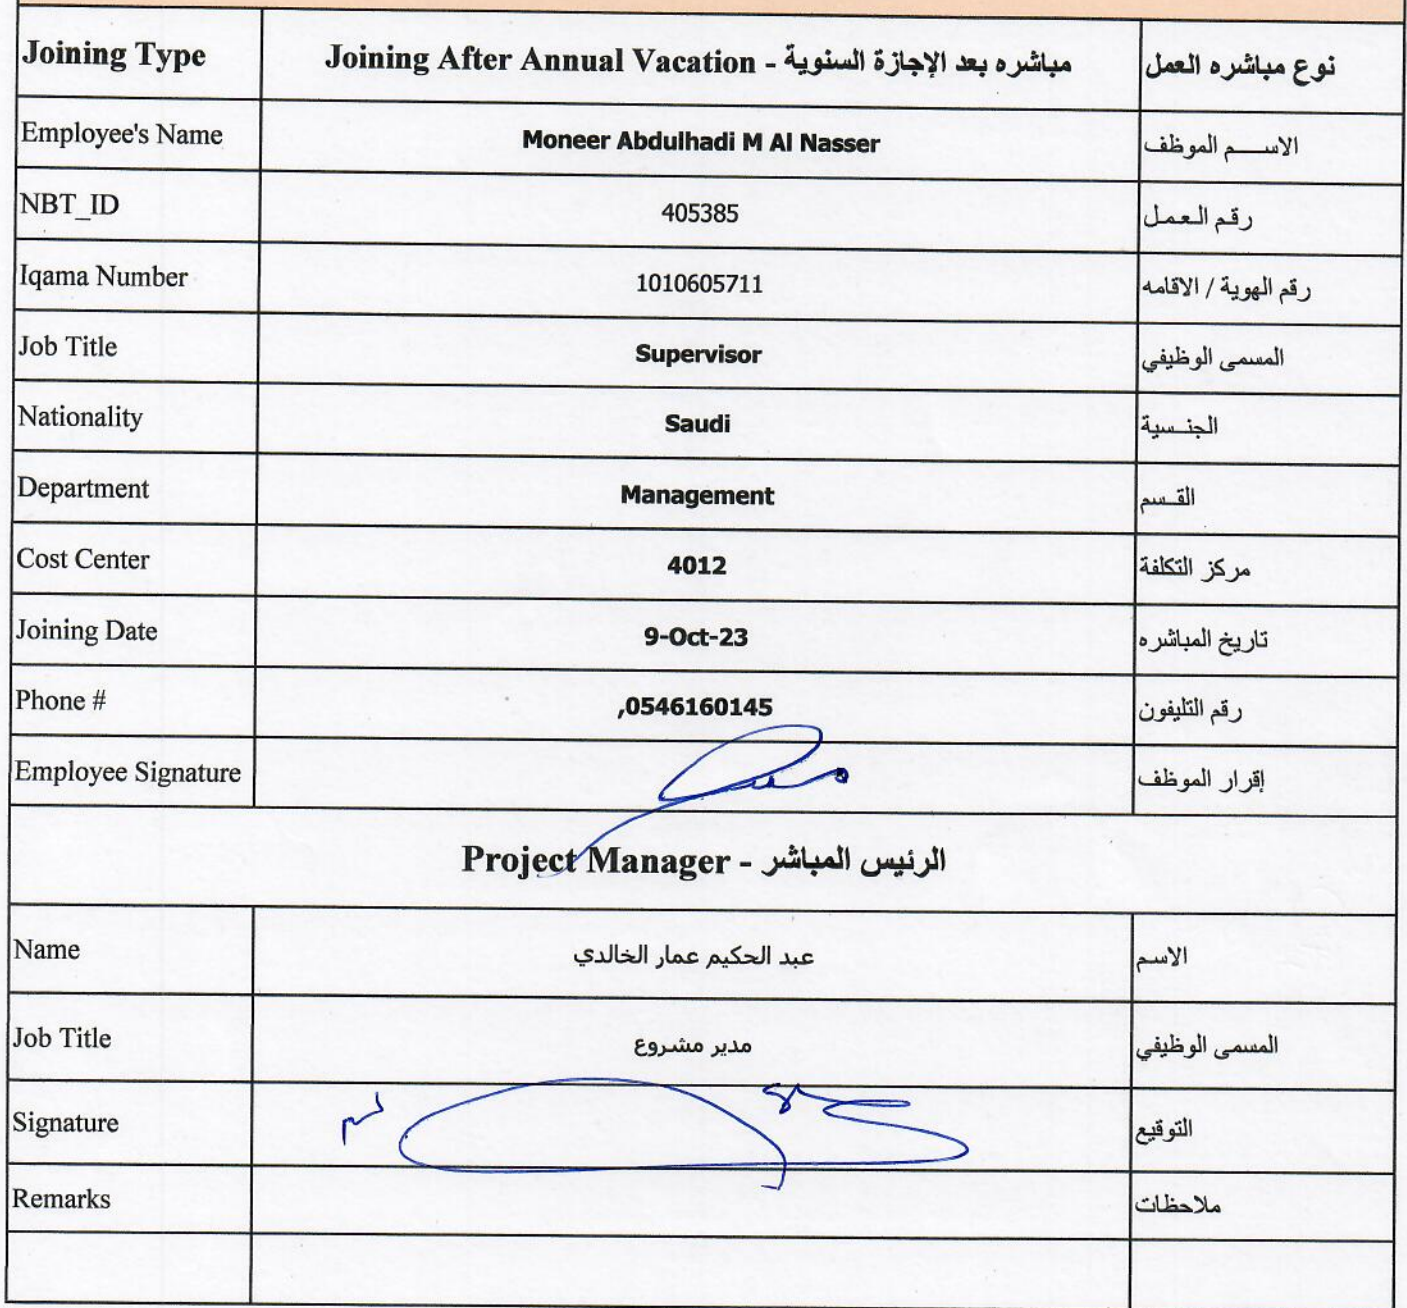 Joining Type Joining After Annual Vacation - مباشره بعد الإجازة السنوية نوع مباشره العمل
Employee's Name Moneer Abdulhadi M Al Nasser الاســـم الموظف
NBT_ID 405385 رقم العمل
Iqama Number 1010605711 رقم الهوية / الاقامه
Job Title Supervisor المسمى الوظيفي
Nationality Saudi الجنــسية
Department Management القــسم
Cost Center 4012 مركز التكلفة
Joining Date 9-Oct-23 تاريخ المباشره
Phone # ,0546160145 رقم التليفون
Employee Signature إقرار الموظف
Project Manager - الرئيس المباشر
Name عبد الحكيم عمار الخالدي الاسم
Job Title مدير مشروع المسمى الوظيفي
Signature التوقيع
Remarks ملاحظات